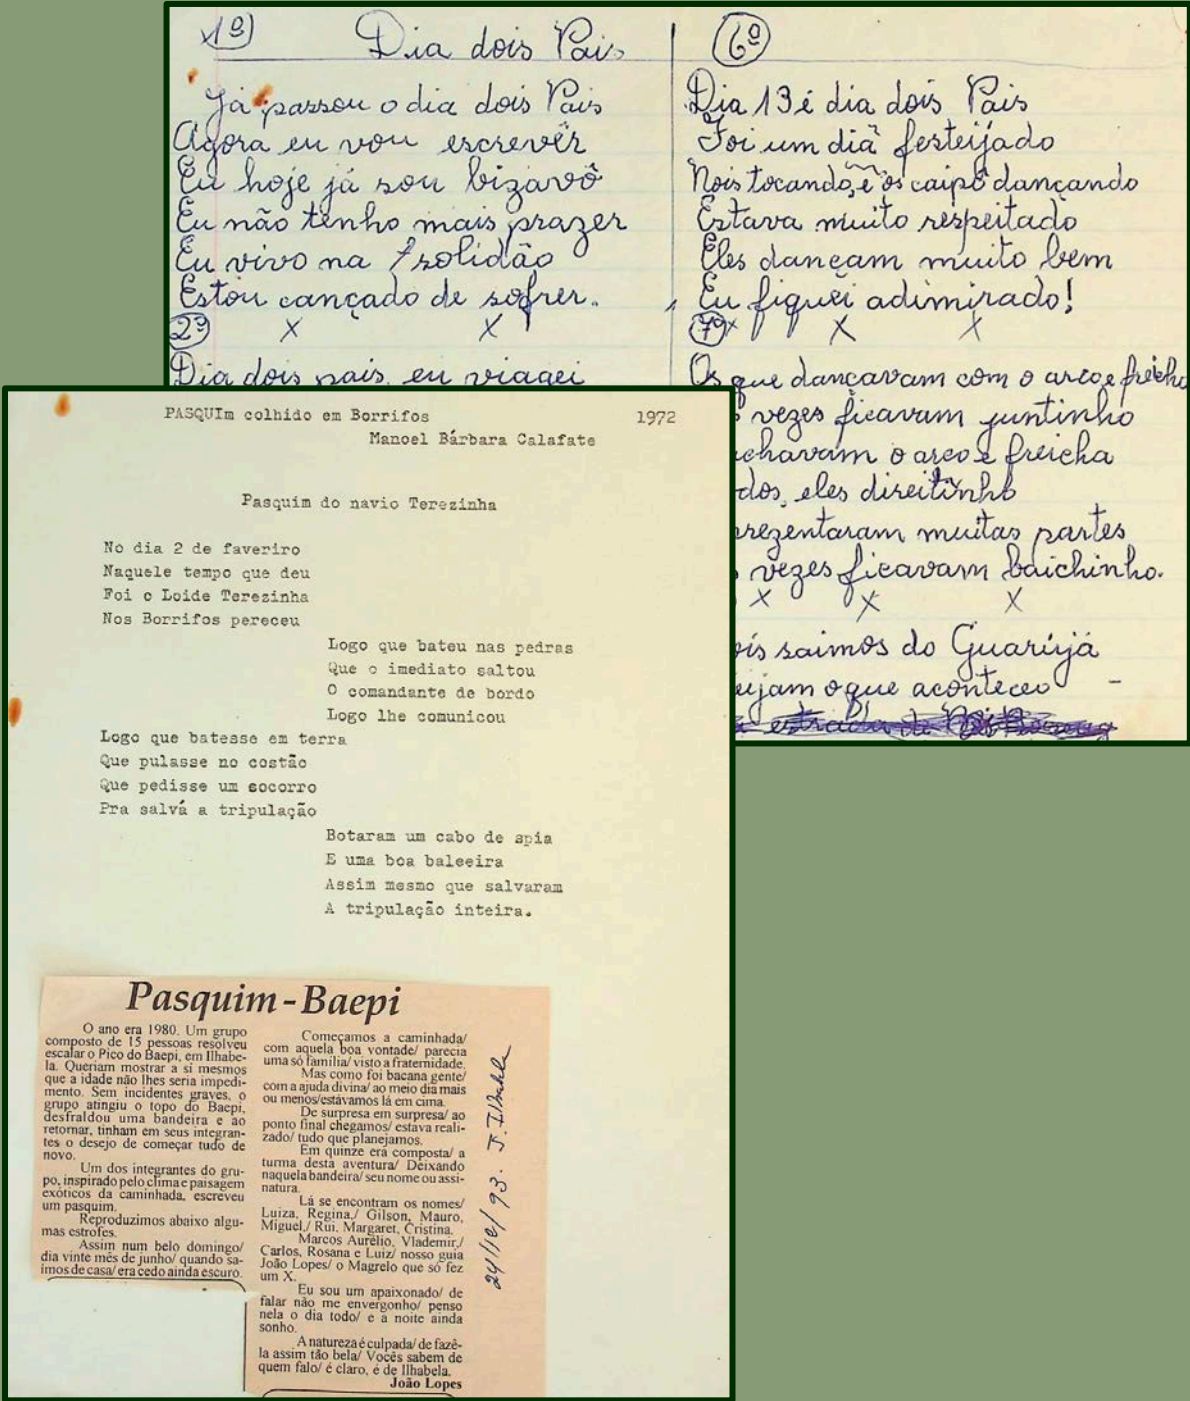 1º)
Dia dois Pais
Já passou o dia dois Pais
Agora eu vou escrevêr
Eu hoje já sou bizavô
Eu não tenho mais prazer
Eu vivo na solidão
Estou cançado de sofrer.
x x
2º
Dia dois pais eu viagei
6º
Dia 13 é dia dois Pais
Foi um dia festeijado
Nois tocando, e os caipô dançando
Estava muito respeitado
Eles dançam muito bem
Eu fiquei adimirado!
7º x x x
Os que dançavam com o arco e freicha
vezes ficavam juntinho
chavam o arco e freicha
dos, eles direitinho
prezentaram muitas partes
vezes ficavam baichinho.
x x x
ois saimos do Guarujá
ejam o que aconteceo
estrada de
PASQUIm colhido em Borrifos 1972
Manoel Bárbara Calafate
Pasquim do navio Terezinha
No dia 2 de faveriro
Naquele tempo que deu
Foi o Loide Terezinha
Nos Borrifos pereceu
Logo que bateu nas pedras
Que o imediato saltou
O comandante de bordo
Logo lhe comunicou
Logo que batesse em terra
Que pulasse no costão
Que pedisse um socorro
Pra salvá a tripulação
Botaram um cabo de spia
E uma boa baleeira
Assim mesmo que salvaram
A tripulação inteira.
Pasquim-Baepi
O ano era 1980. Um grupo
composto de 15 pessoas resolveu
escalar o Pico do Baepi, em Ilhabe-
la. Queriam mostrar a si mesmos
que a idade não lhes seria impedi-
mento. Sem incidentes graves, o
grupo atingiu o topo do Baepi,
desfraldou uma bandeira e ao
retornar, tinham em seus integran-
tes o desejo de começar tudo de
novo.
Um dos integrantes do gru-
po, inspirado pelo clima e paisagem
exóticos da caminhada, escreveu
um pasquim.
Reproduzimos abaixo algu-
mas estrofes.
Assim num belo domingo/
dia vinte mês de junho/ quando sa-
ímos de casa/ era cedo ainda escuro.
Começamos a caminhada/
com aquela boa vontade/ parecia
uma só família/ visto a fraternidade.
Mas como foi bacana gente/
com a ajuda divina/ ao meio dia mais
ou menos/estávamos lá em cima.
De surpresa em surpresa/ ao
ponto final chegamos/ estava reali-
zado/ tudo que planejamos.
Em quinze era composta/ a
turma desta aventura/ Deixando
naquela bandeira/ seu nome ou assi-
natura.
Lá se encontram os nomes/
Luiza, Regina,/ Gilson, Mauro,
Miguel,/ Rui, Margaret, Cristina.
Marcos Aurélio, Vlademir,/
Carlos, Rosana e Luiz/ nosso guia
João Lopes/ o Magrelo que só fez
um X.
Eu sou um apaixonado/ de
falar não me envergonho/ penso
nela o dia todo/ e a noite ainda
sonho.
A natureza é culpada/ de fazê-
la assim tão bela/ Vocês sabem de
quem falo/ é claro, é de Ilhabela.
João Lopes
24/10/93. J. Ilhabela